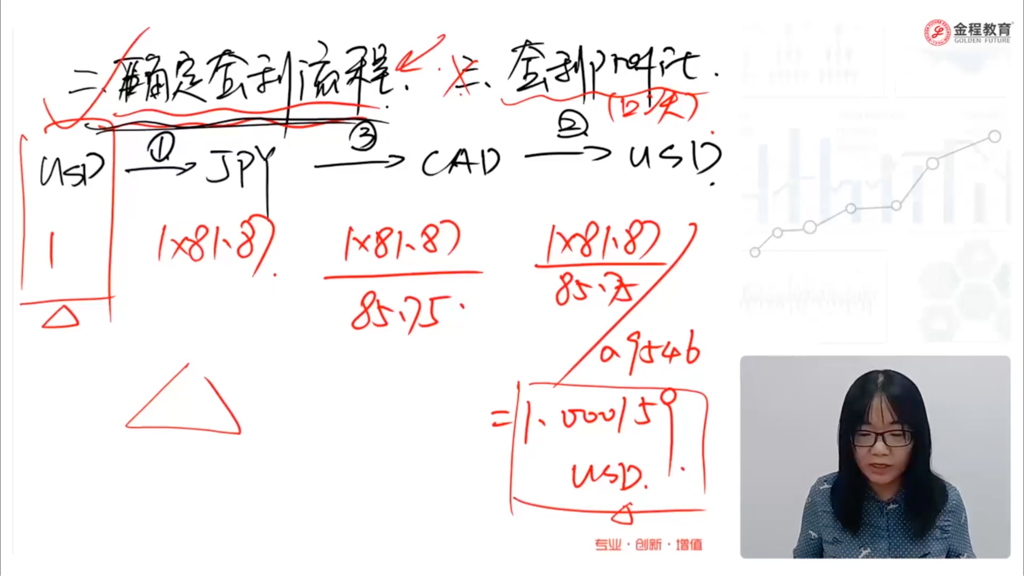 金程教育
GOLDEN FUTURE
二、确定套利流程. 三、套利profit.
(口头).
① ③ ②
USD → JPY → CAD → USD.
1 1×81.87. 1×81.87 1×81.87
85.75. 85.75
0.9546
= 1.000159
USD.
专业·创新·增值